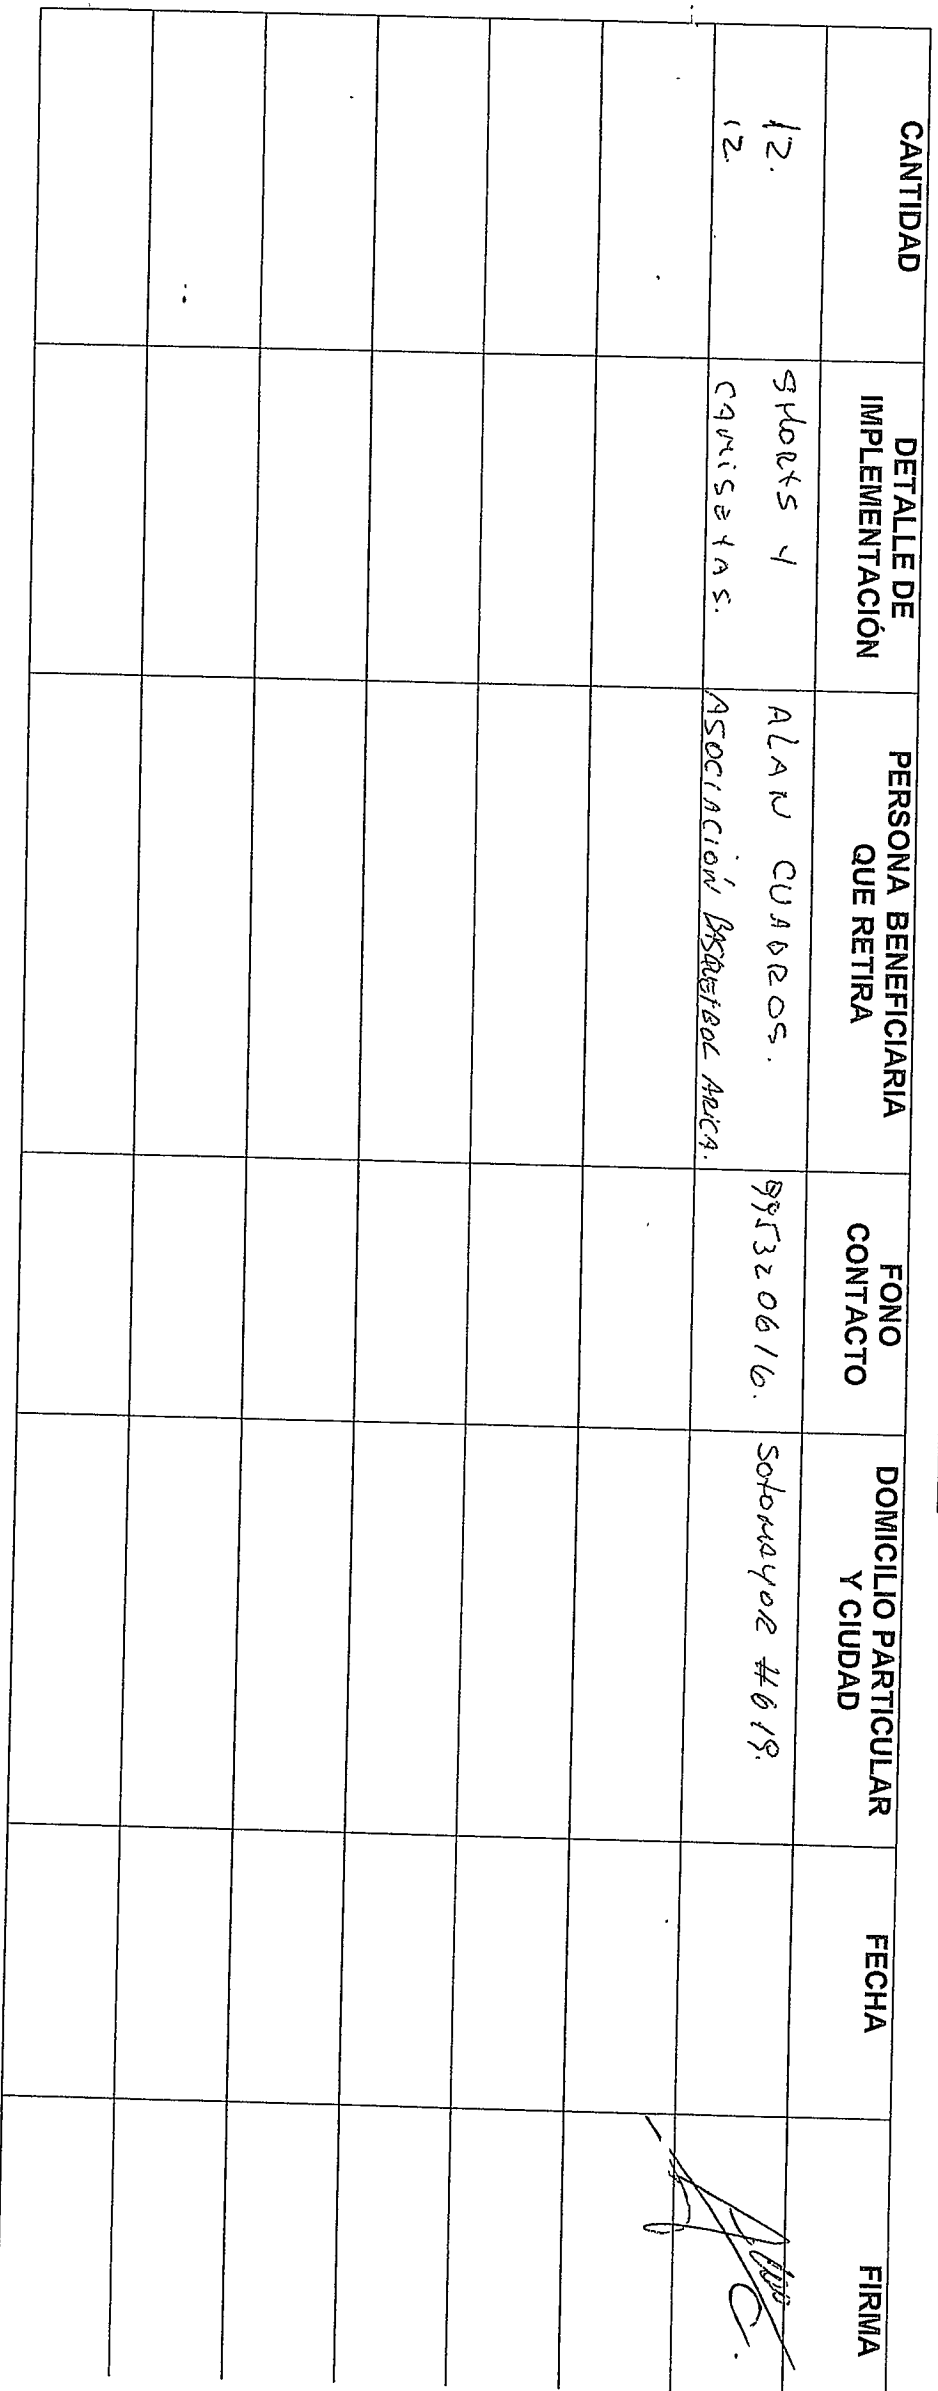 CANTIDAD
DETALLE DE
IMPLEMENTACIÓN
PERSONA BENEFICIARIA
QUE RETIRA
FONO
CONTACTO
DOMICILIO PARTICULAR
Y CIUDAD
FECHA
FIRMA
12.
12.
SHORTS Y
CAMISETAS.
ALAN CUADROS.
ASOCIACIÓN BASQUETBOL ARICA.
995320616.
SOTOMAYOR #619.